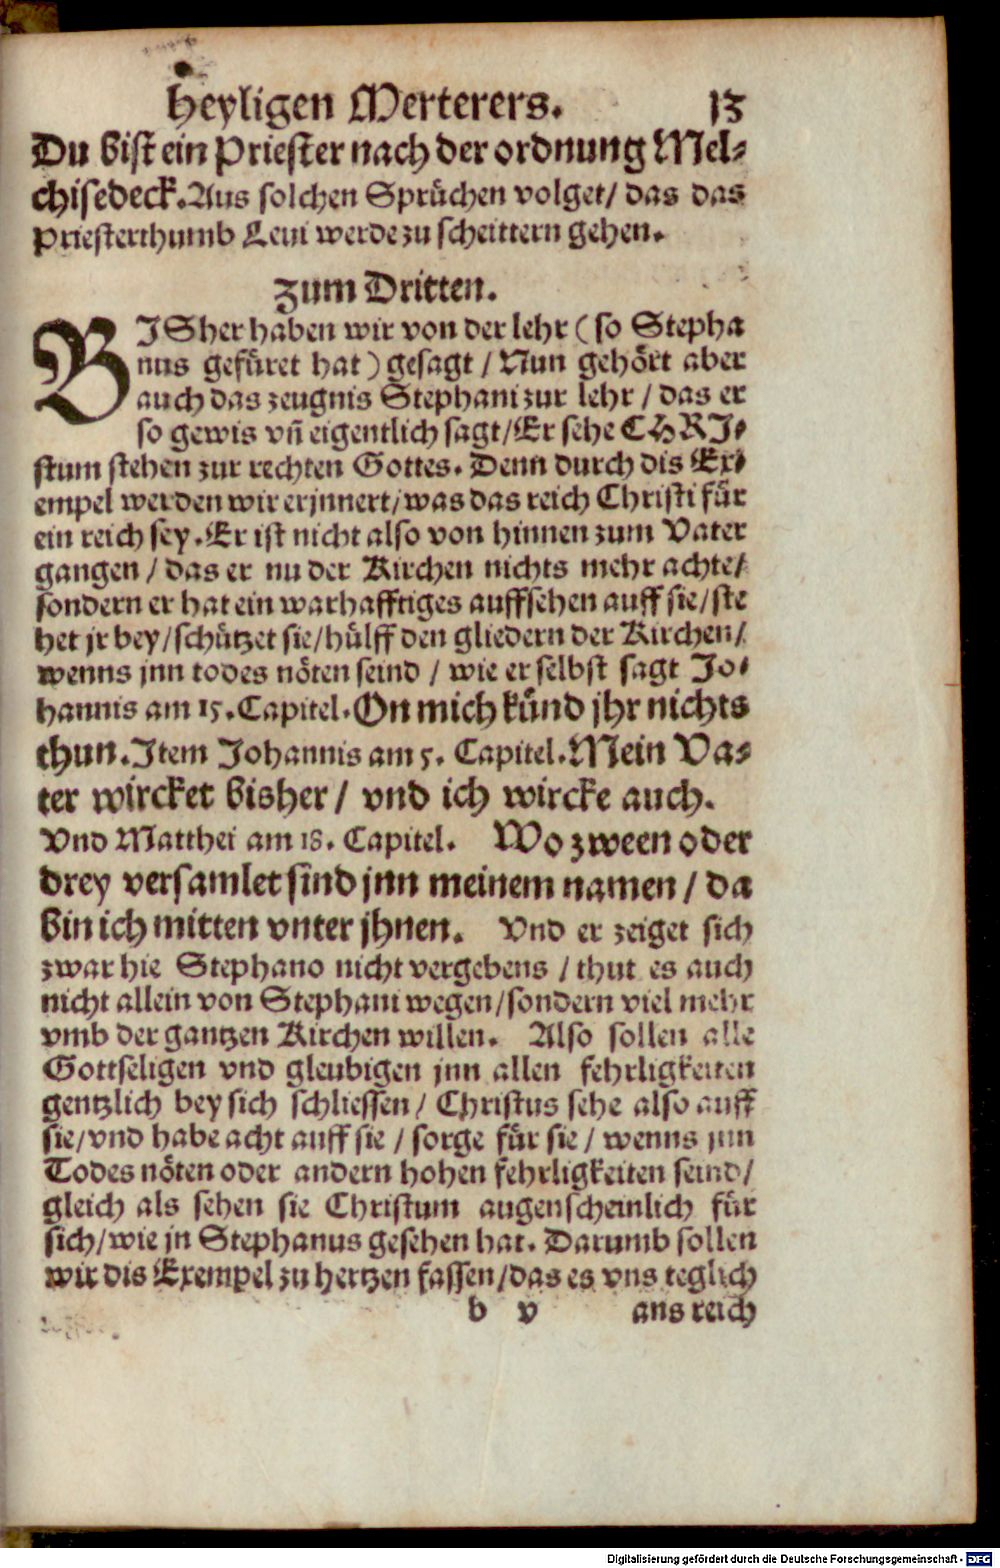 Heyligen Merterers. 13
Du bist ein Priester nach der ordnung Mel⸗
chisedeck. Aus solchen Sprüchen volget/ das das
Priesterthumb Leui werde zu scheittern gehen.
Zum Dritten.
BJSher haben wir von der lehr ( so Stepha
nus gefüret hat ) gesagt / Nun gehört aber
auch das zeugnis Stephani zur lehr / das er
so gewis vñ eigentlich sagt/ Er sehe CHRJ⸗
stum stehen zur rechten Gottes. Denn durch dis Ex⸗
empel werden wir erjnnert/ was das reich Christi für
ein reich sey. Er ist nicht also von hinnen zum Vater
gangen / das er nu der Kirchen nichts mehr achte/
sondern er hat ein warhafftiges auffsehen auff sie/ ste
het jr bey/ schützet sie/ hülff den gliedern der Kirchen/
wenns jnn todes nöten seind / wie er selbst sagt Jo⸗
hannis am 15. Capitel. On mich künd jhr nichts
thun. Jtem Johannis am 5. Capitel. Mein Va⸗
ter wircket bisher / vnd ich wircke auch.
Vnd Matthei am 18. Capitel. Wo zween oder
drey versamlet sind jnn meinem namen / da
bin ich mitten vnter jhnen. Vnd er zeiget sich
zwar hie Stephano nicht vergebens / thut es auch
nicht allein von Stephani wegen/ sondern viel mehr
vmb der gantzen Kirchen willen. Also sollen alle
Gottseligen vnd gleubigen jnn allen fehrligkeiten
gentzlich bey sich schliessen / Christus sehe also auff
sie/ vnd habe acht auff sie / sorge für sie / wenns jnn
Todes nöten oder andern hohen fehrligkeiten seind/
gleich als sehen sie Christum augenscheinlich für
sich/ wie jn Stephanus gesehen hat. Darumb sollen
wir dis Exempel zu hertzen fassen/ das es vns teglich
b v ans reich
Digitalisierung gefördert durch die Deutsche Forschungsgemeinschaft - DFG